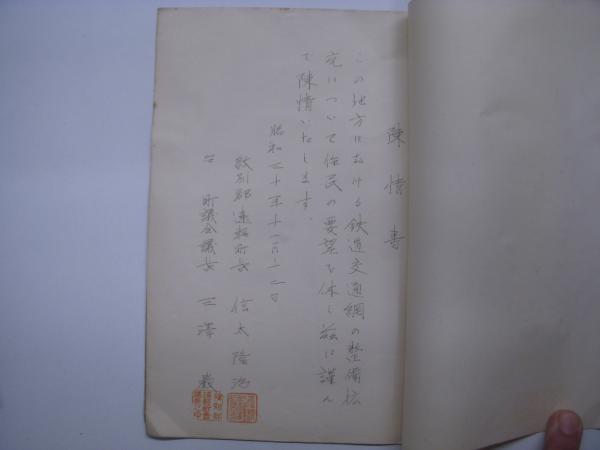 陳情書
この地方における鉄道交通網の整備拡
充について住民の要望を体し茲に謹ん
で陳情いたします。
昭和三十年十一月十二日
紋別郡遠軽町長 信太隆治
仝 町議会議長 三澤巖